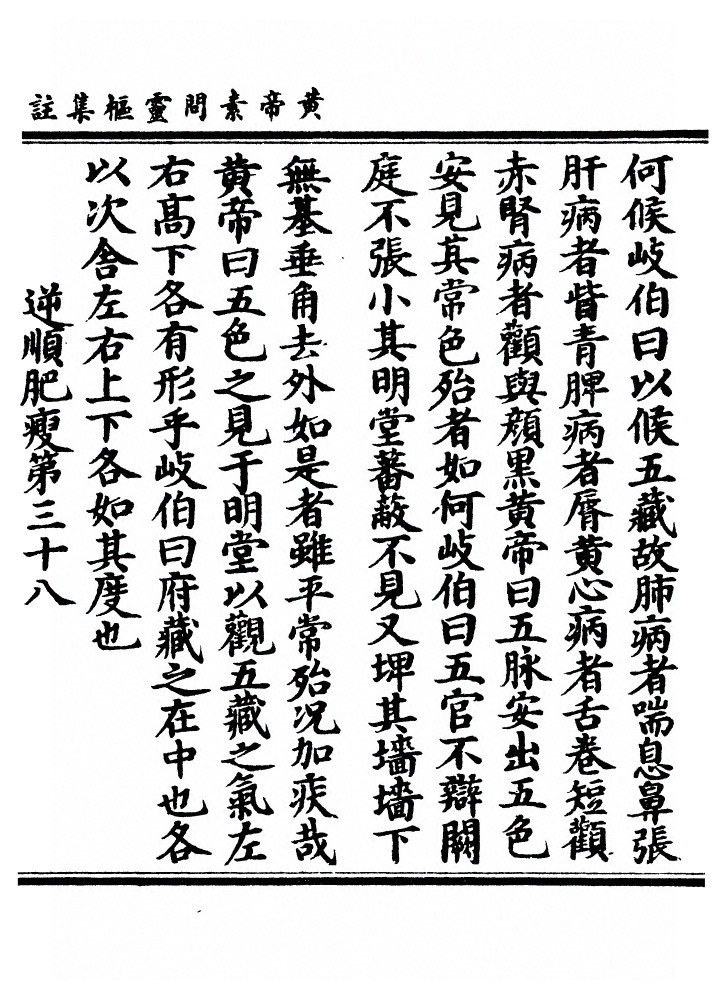 黄帝素問靈樞集註
何候岐伯曰以候五藏故肺病者喘息鼻張
肝病者眥青脾病者脣黄心病者舌卷短顴
赤腎病者顴與顔黒黄帝曰五脉安出五色
安見其常色殆者如何岐伯曰五官不辯闕
庭不張小其明堂蕃蔽不見又埤其墻墻下
無基垂角去外如是者雖平常殆况加疾哉
黄帝曰五色之見于明堂以觀五藏之氣左
右髙下各有形乎岐伯曰府藏之在中也各
以次舎左右上下各如其度也
逆順肥瘦第三十八